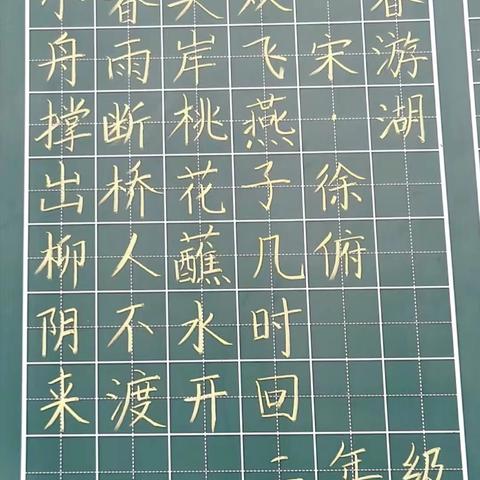 春游湖
宋·徐俯
双飞燕子几时回
夹岸桃花蘸水开
春雨断桥人不渡
小舟撑出柳阴来
年级